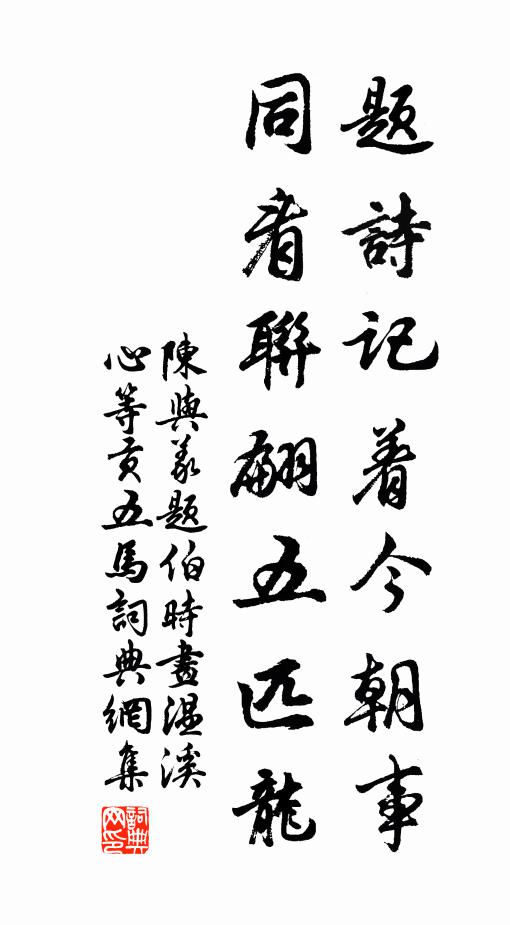 題詩記着今朝事
同看聯翩五匹龍
陳與義題伯時畫温溪
心等貢五馬詞典網集
詞典
网印